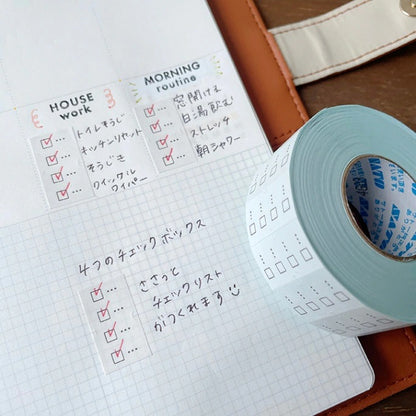 HOUSE
work
トイレそうじ
キッチンリセット
そうじき
クイックル
ワイパー
MORNING
routine
窓開ける
白湯飲む
ストレッチ
朝シャワー
4つのチェックボックス
ささっと
チェックリスト
がつくれます